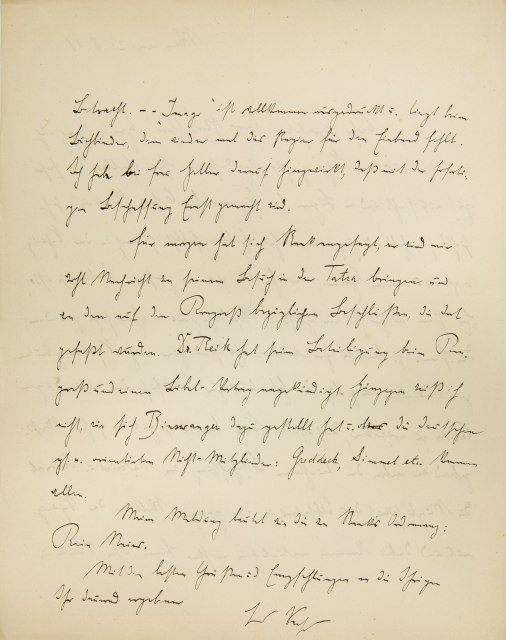 Betracht. – – „Imago“ ist vollkommen ausgedruckt u. liegt beim
Buchbinder, dem wieder mal das Papier für den Einband fehlt.
Ich habe bei Heller darauf hingewirkt, daß mit der soforti-
gen Beschaffung Ernst gemacht wird.
Für morgen hat sich Rank angesagt, er wird mir
wohl Nachricht von seinem Besuch in der Tatra bringen und
von den auf den Kongreß bezüglichen Beschlüssen, die dort
gefaßt wurden. Dr. Reik hat seine Beteiligung beim Kon-
greß und einen Bibel-Vortrag angekündigt. Hingegen weiß ich
nicht, wie sich Binswanger dazu gestellt hat u. ob die deutschen
ψα. orientierten Nicht-Mitglieder: Groddeck, Simmel etc. kommen
wollen.
Meine Meldung lautet wie die von Ranks Ordnung:
Kein Neues.
Mit den besten Grüßen und Empfehlungen an die Ihrigen
Ihr dauernd ergebener